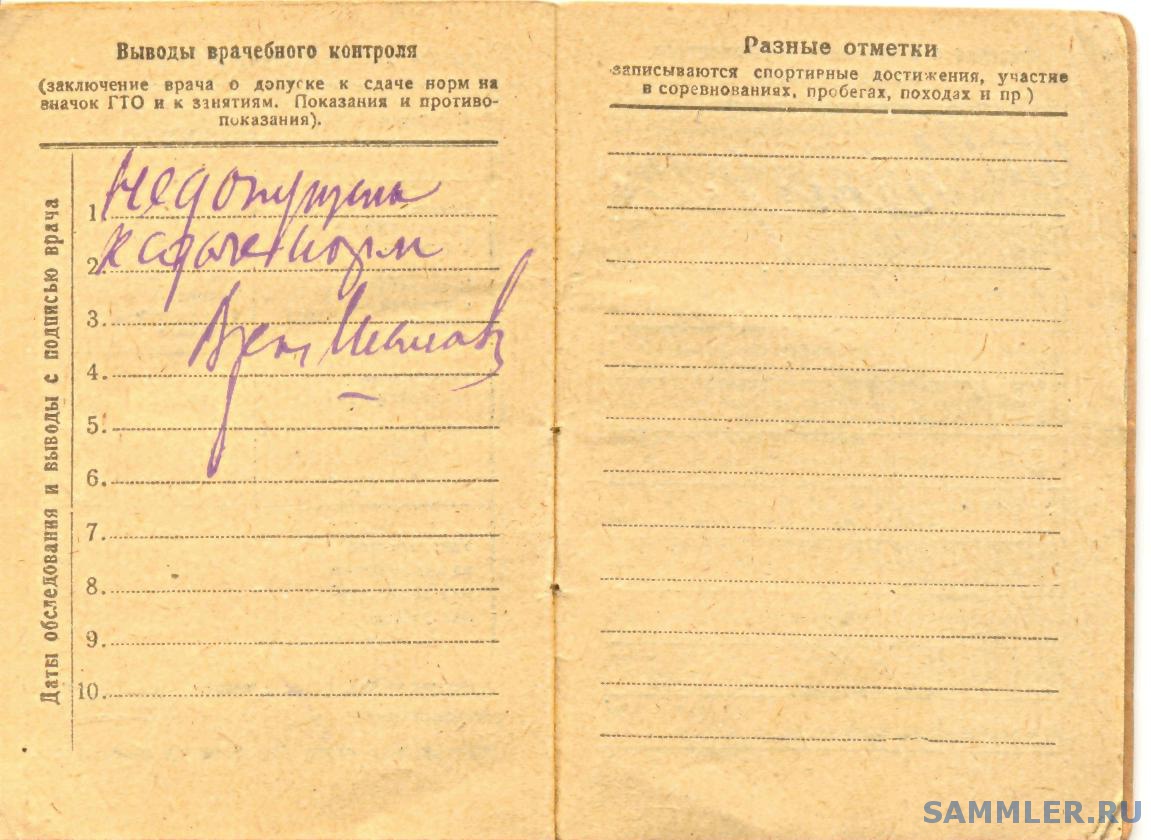 Выводы врачебного контроля
(заключение врача о допуске к сдаче норм на
значок ГТО и к занятиям. Показания и противо-
показания).
Даты обследования и выводы с подписью врача
1. Не допущена
2. к сдаче норм
3. Врач
4.
5.
6.
7.
8.
9.
10.
Разные отметки
записываются спортивные достижения, участие
в соревнованиях, пробегах, походах и пр)
SAMMLER.RU